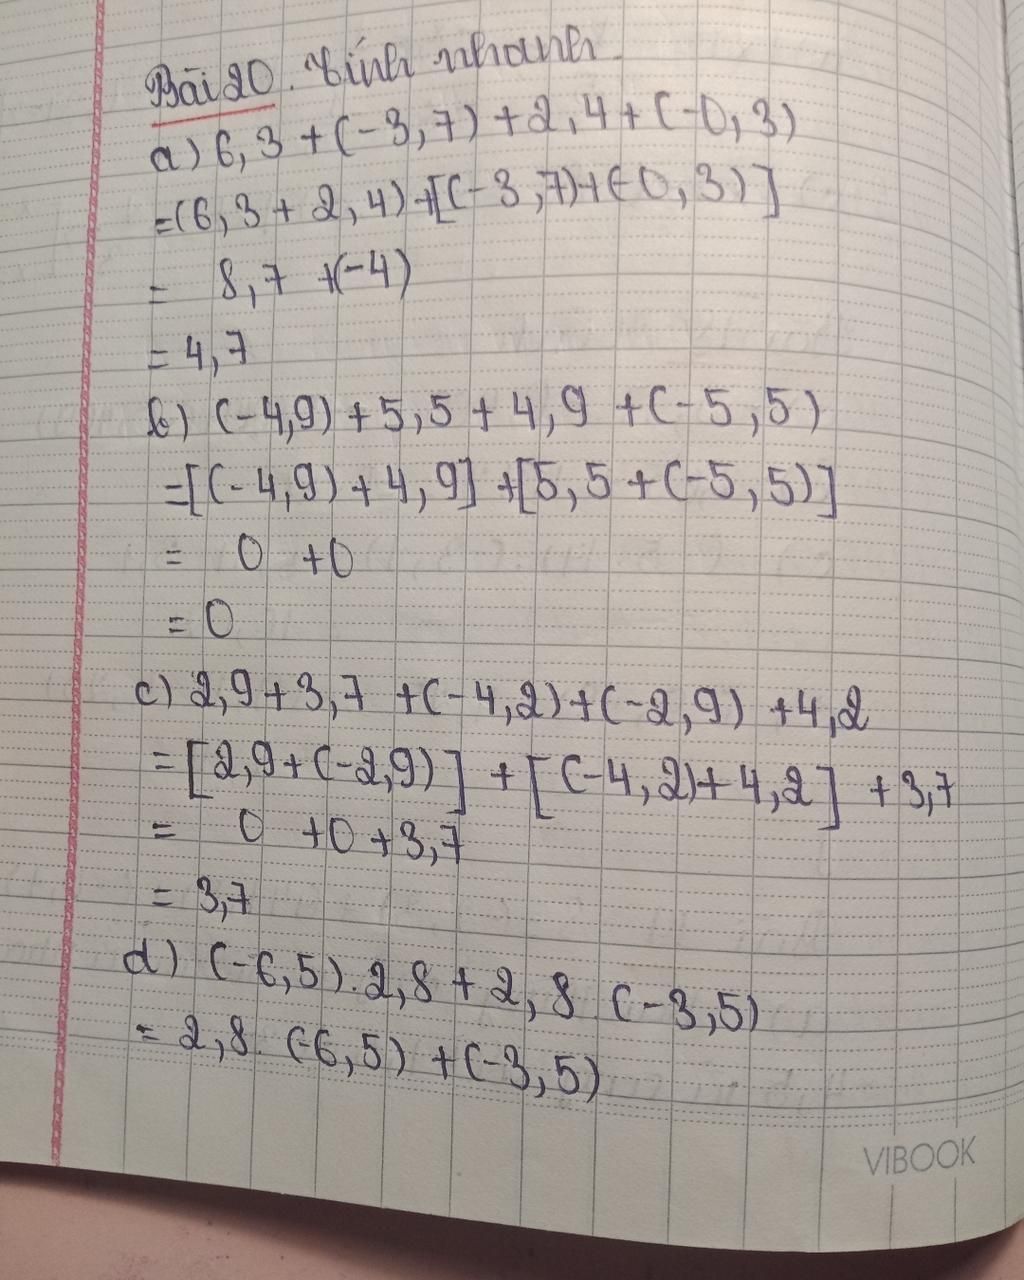 Bài 20. Tính nhanh.
a) 6,3 + (-3,7) + 2,4 + (-0,3)
= (6,3 + 2,4) + [(-3,7) + (-0,3)]
= 8,7 + (-4)
= 4,7
b) (-4,9) + 5,5 + 4,9 + (-5,5)
= [(-4,9) + 4,9] + [5,5 + (-5,5)]
= 0 + 0
= 0
c) 2,9 + 3,7 + (-4,2) + (-2,9) + 4,2
= [2,9 + (-2,9)] + [(-4,2) + 4,2] + 3,7
= 0 + 0 + 3,7
= 3,7
d) (-6,5) . 2,8 + 2,8 (-3,5)
= 2,8 . (-6,5) + (-3,5)
VIBOOK